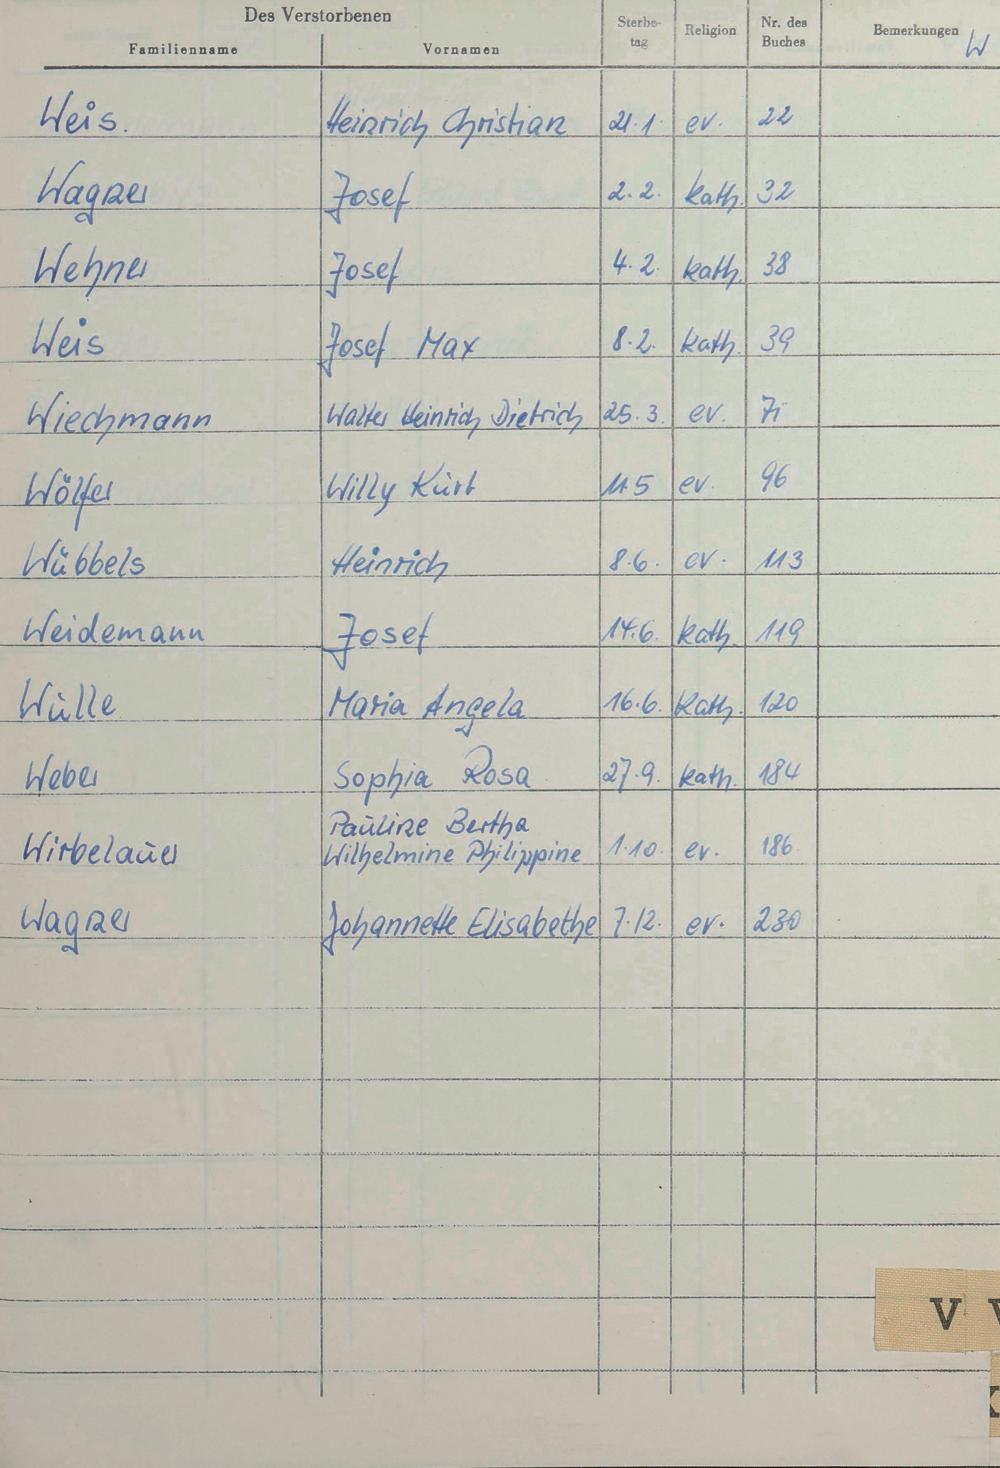 Des Verstorbenen
Familienname Vornamen Sterbe-tag Religion Nr. des Buches Bemerkungen W
Weis. Heinrich Christian 21.1. ev. 22
Wagner Josef 2.2. kath. 32
Wehner Josef 4.2. kath. 38
Weis Josef Max 8.2. kath. 39
Wiechmann Walter Heinrich Dietrich 25.3. ev. 71
Wölfer Willy Kurt ev. 96
Wübbels Heinrich 8.6. ev. 113
Weidemann Josef 14.6. kath. 119
Wülle Maria Angela 16.6. kath. 120
Weber Sophia Rosa 27.9. kath. 184
Pauline Bertha
Wirbelauer Wilhelmine Philippine 1.10. ev. 186
Wagner Johannette Elisabethe 7.12. ev. 230
V